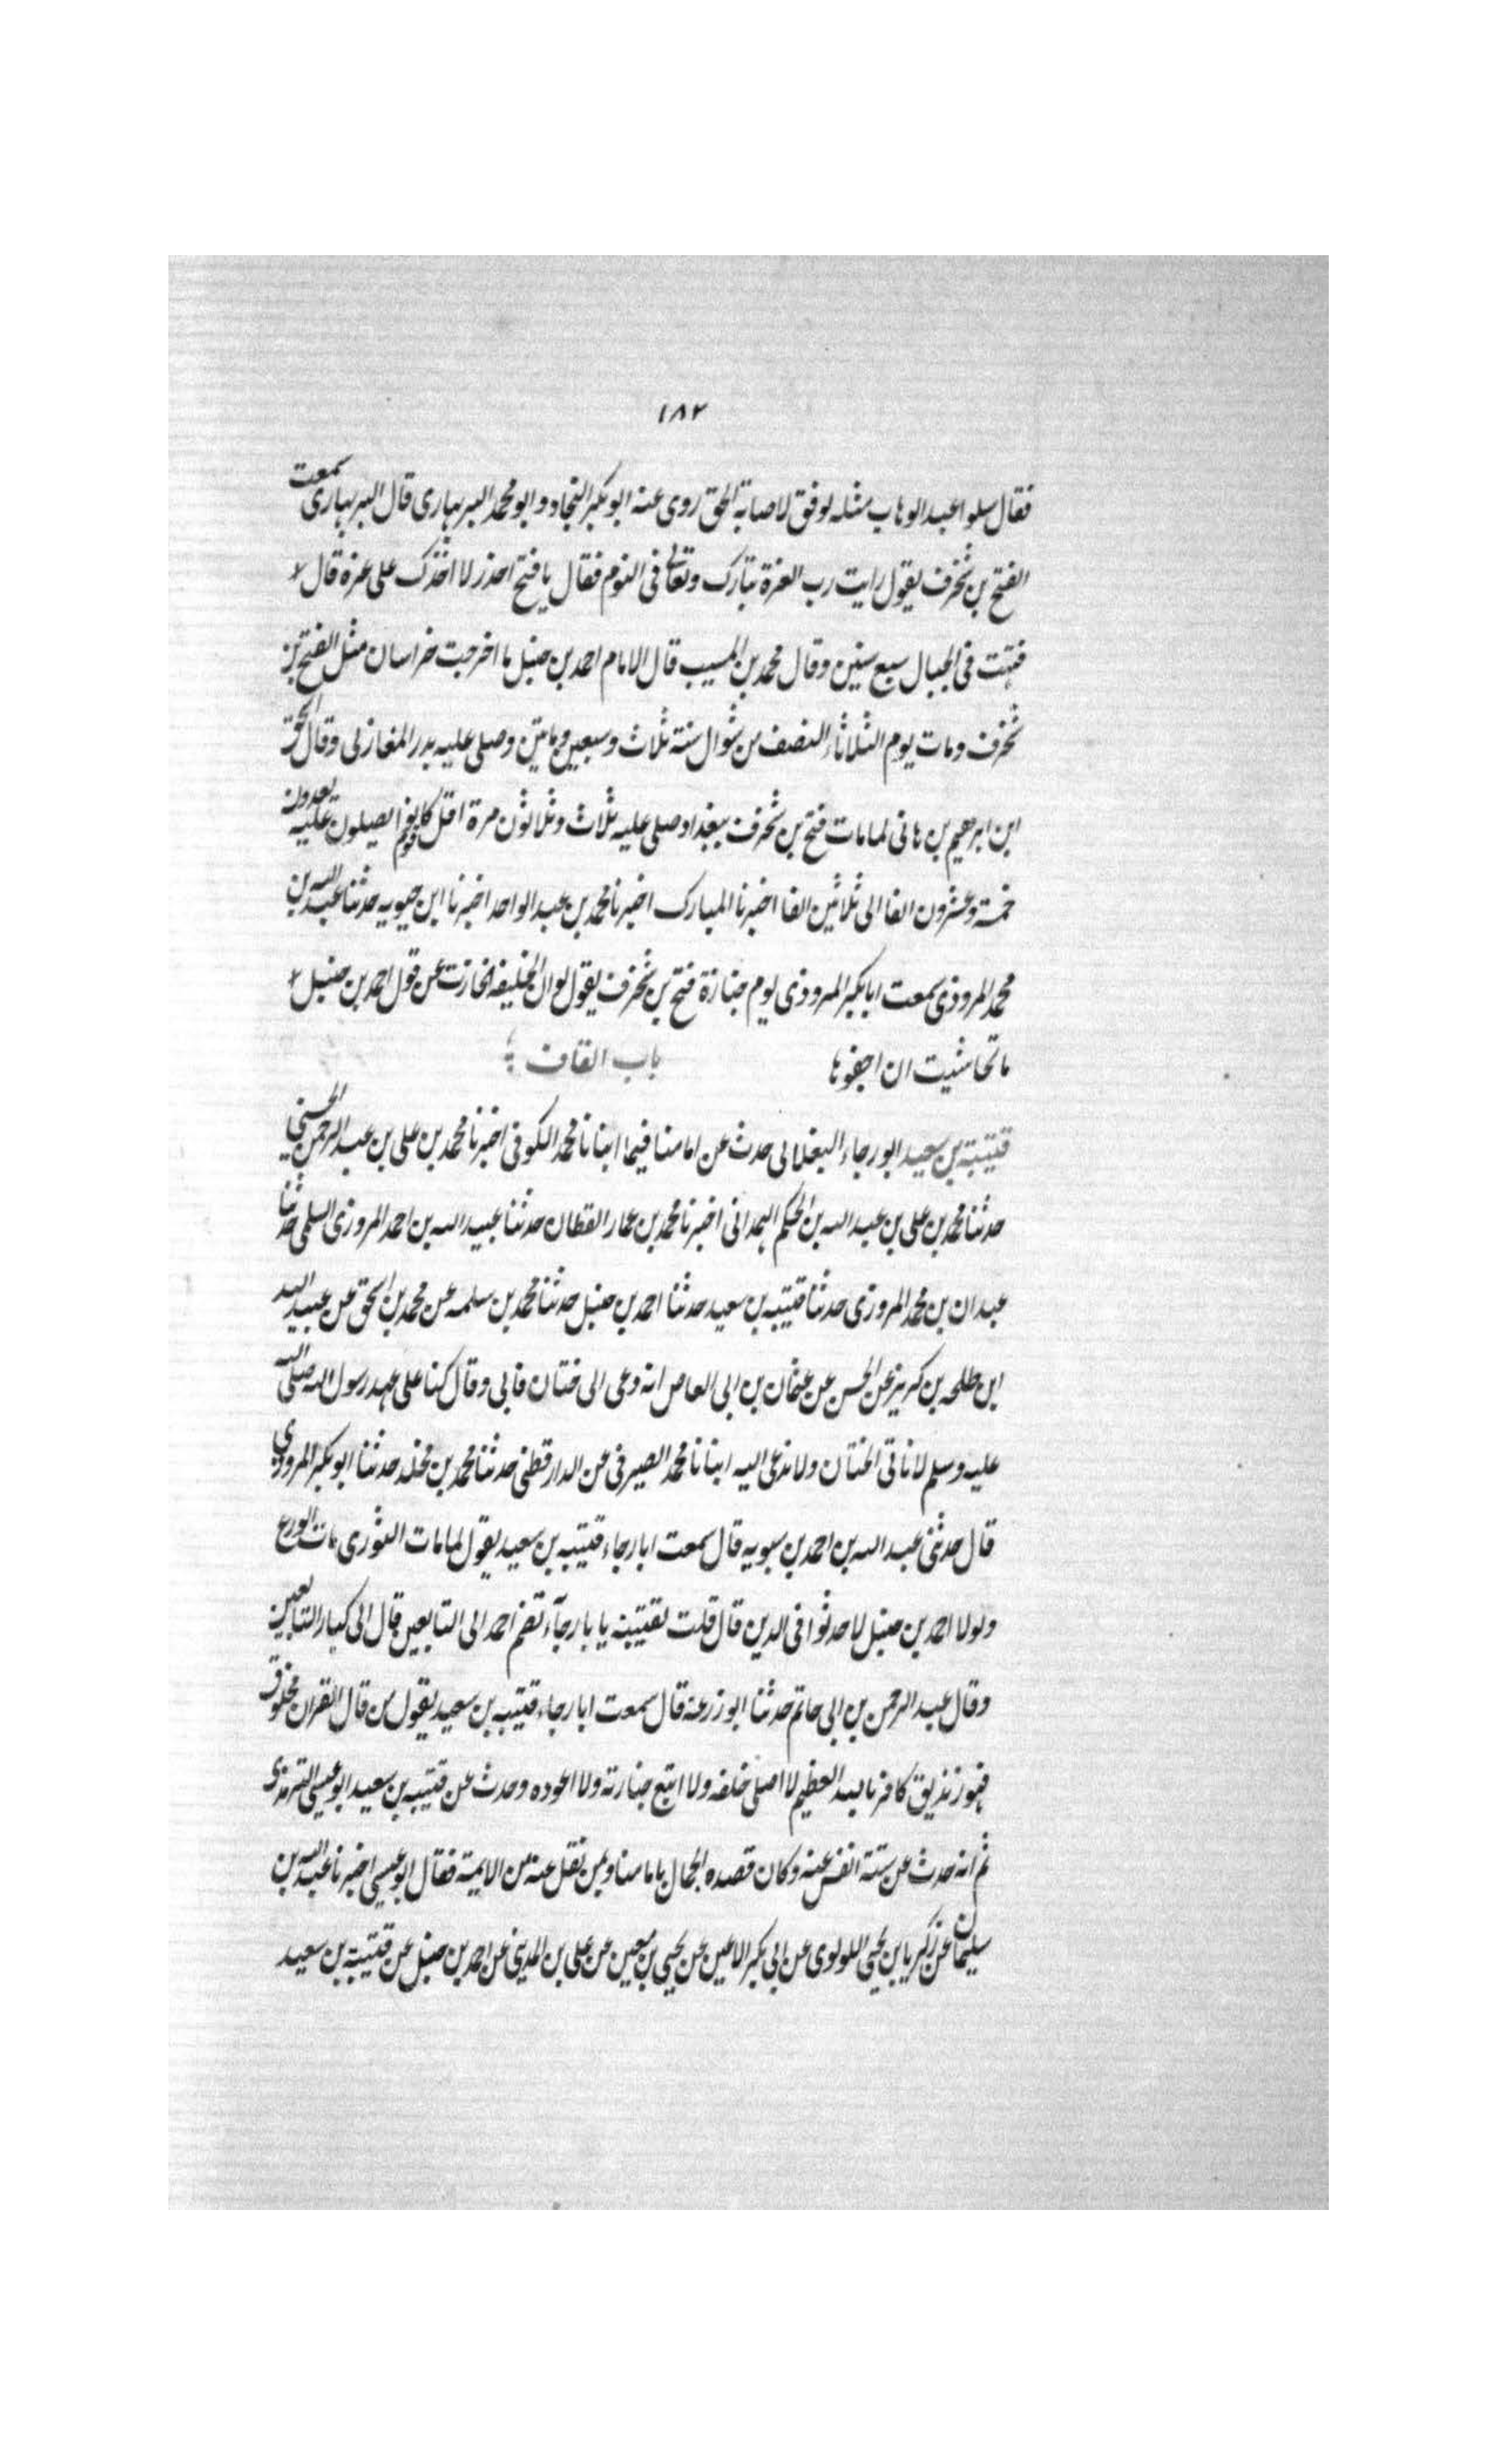 ١٨٢
فقال سلوا عبد الوهاب مثله لوفق لاصابة الحق روى عنه ابو بكر النجاد وابو محمد البربهارى قال البربهارى سمعت
الفتح بن شخرف يقول رايت رب العزة تبارك وتعالى فى النوم فقال يا فتح احذر لا اخذك على غرة قال
فتهت فى الجبال سبع سنين وقال محمد بن المسيب قال الامام احمد بن حنبل ما اخرجت خراسان مثل الفتح بن
شخرف ومات يوم الثلاثاء النصف من شوال سنة ثلاث وسبعين وماتين وصلى عليه بدر المغازلى وقال اسحق
ابن ابرهيم بن هانى لما مات فتح بن شخرف ببغداد صلى عليه ثلاث وثلاثون مرة اقل قوم كانوا يصلون عليه يعدون
خمسة وعشرون الفا الى ثلاثين الفا اخبرنا المبارك اخبرنا محمد بن عبد الواحد اخبرنا ابن حيويه حدثنا عبد الله بن
محمد المروذى سمعت ابا بكر المروذى يوم جنازة فتح بن شخرف يقول لو ان الخليفه انحازت عن قول احمد بن حنبل
ما تحاشيت ان اجفوها باب القاف
قتيبة بن سعيد ابو رجاء البغلانى حدث عن امامنا فيما انبانا محمد الكوفى اخبرنا محمد بن على بن عبد الرحمن الحسنى
حدثنا محمد بن على بن عبد الله بن الحكم الهمدانى اخبرنا محمد بن عمار القطان حدثنا عبيد الله بن احمد المروزى السلمى حدثنا
عبدان بن محمد المروزى حدثنا قتيبه بن سعيد حدثنا احمد بن حنبل حدثنا محمد بن سلمه عن محمد بن اسحق عن عبيد الله
ابن طلحه بن كريز عن الحسن عن عثمان بن ابى العاص انه دعى الى ختان فابى وقال كنا على عهد رسول الله صلى الله
عليه وسلم لا ناتى الختان ولا ندعى اليه انبانا محمد الصيرفى عن الدارقطنى حدثنا محمد بن مخلد حدثنا ابو بكر المروذي
قال حدثنى عبد الله بن احمد بن سبويه قال سمعت ابا رجاء قتيبه بن سعيد يقول لما مات الثورى مات الورع
ولولا احمد بن حنبل لاحدثوا فى الدين قال قلت لقتيبة يا با رجآء تضم احمد الى التابعين قال الى كبار التابعين
وقال عبد الرحمن بن ابى حاتم حدثنا ابو زرعة قال سمعت ابا رجاء قتيبه بن سعيد يقول من قال القران مخلوق
فهو زنديق كافر بالله العظيم لا اصلى خلفه ولا اتبع جنازته ولا اعوده وحدث عن قتيبه بن سعيد ابو عيسى الترمذى
ثم انه حدث عن ستة انفس عنه وكان قصده الجمال بامامنا وبمن نقل عنه من الايمة فقال ابو عيسى اخبرنا عبد الله بن
سليمان عن زكريا بن يحيى اللولوى عن ابى بكر الاعين عن يحيى بن معين عن على بن المدينى عن احمد بن حنبل عن قتيبة بن سعيد